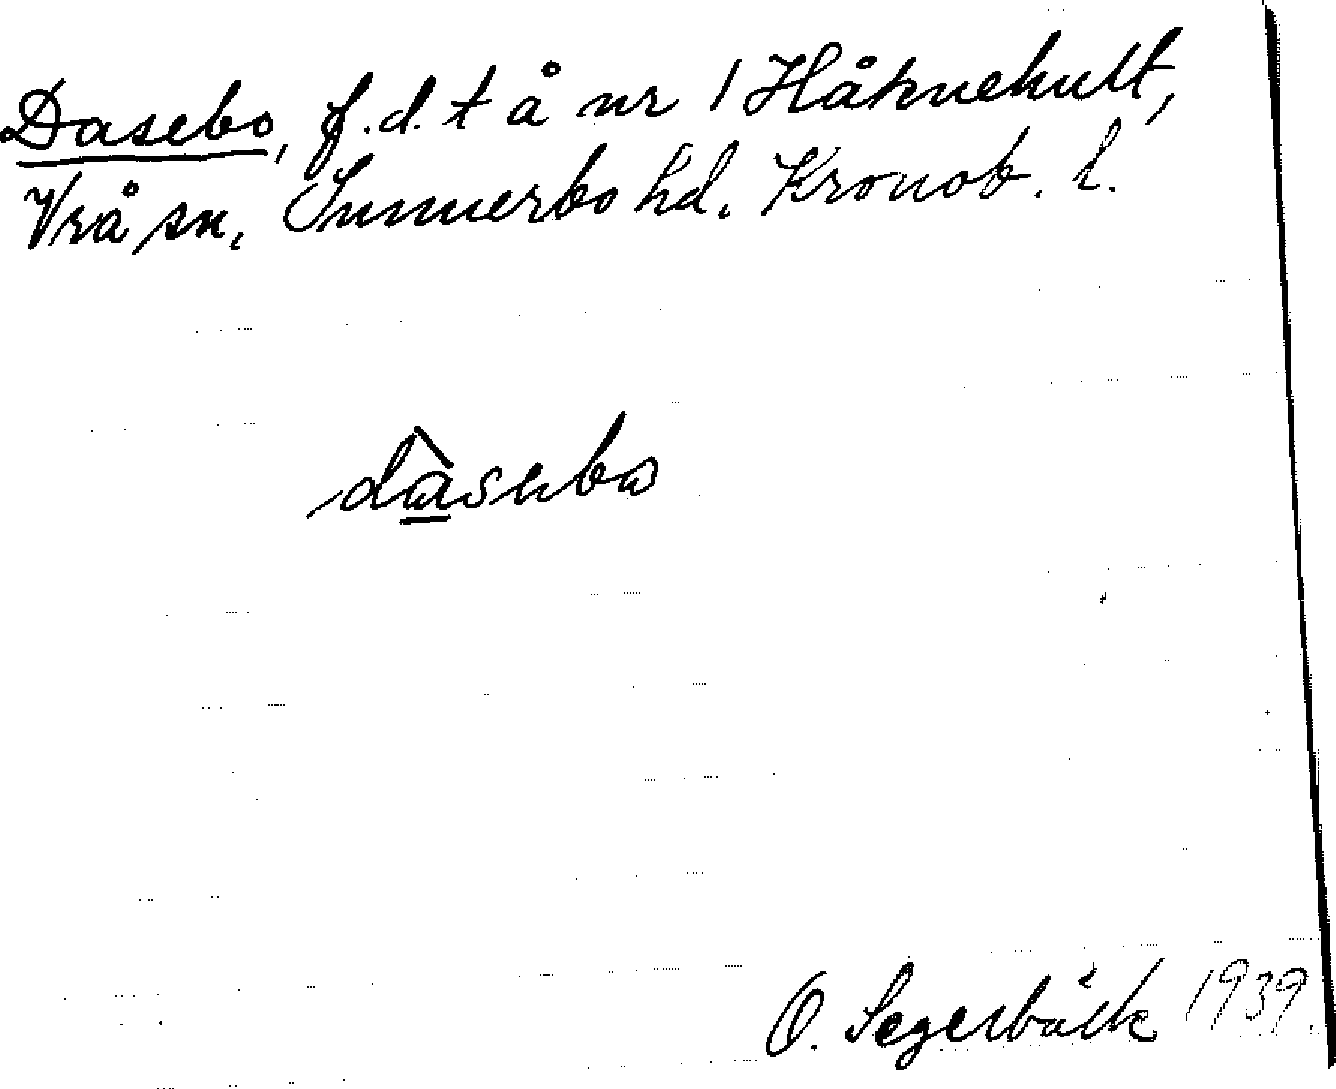 Dasebo, f.d. t å nr 1 Håknehult,
Vrå sn, Sunnerbo hd. Kronob. l.
dasebo
O. Segerbäck 1939.